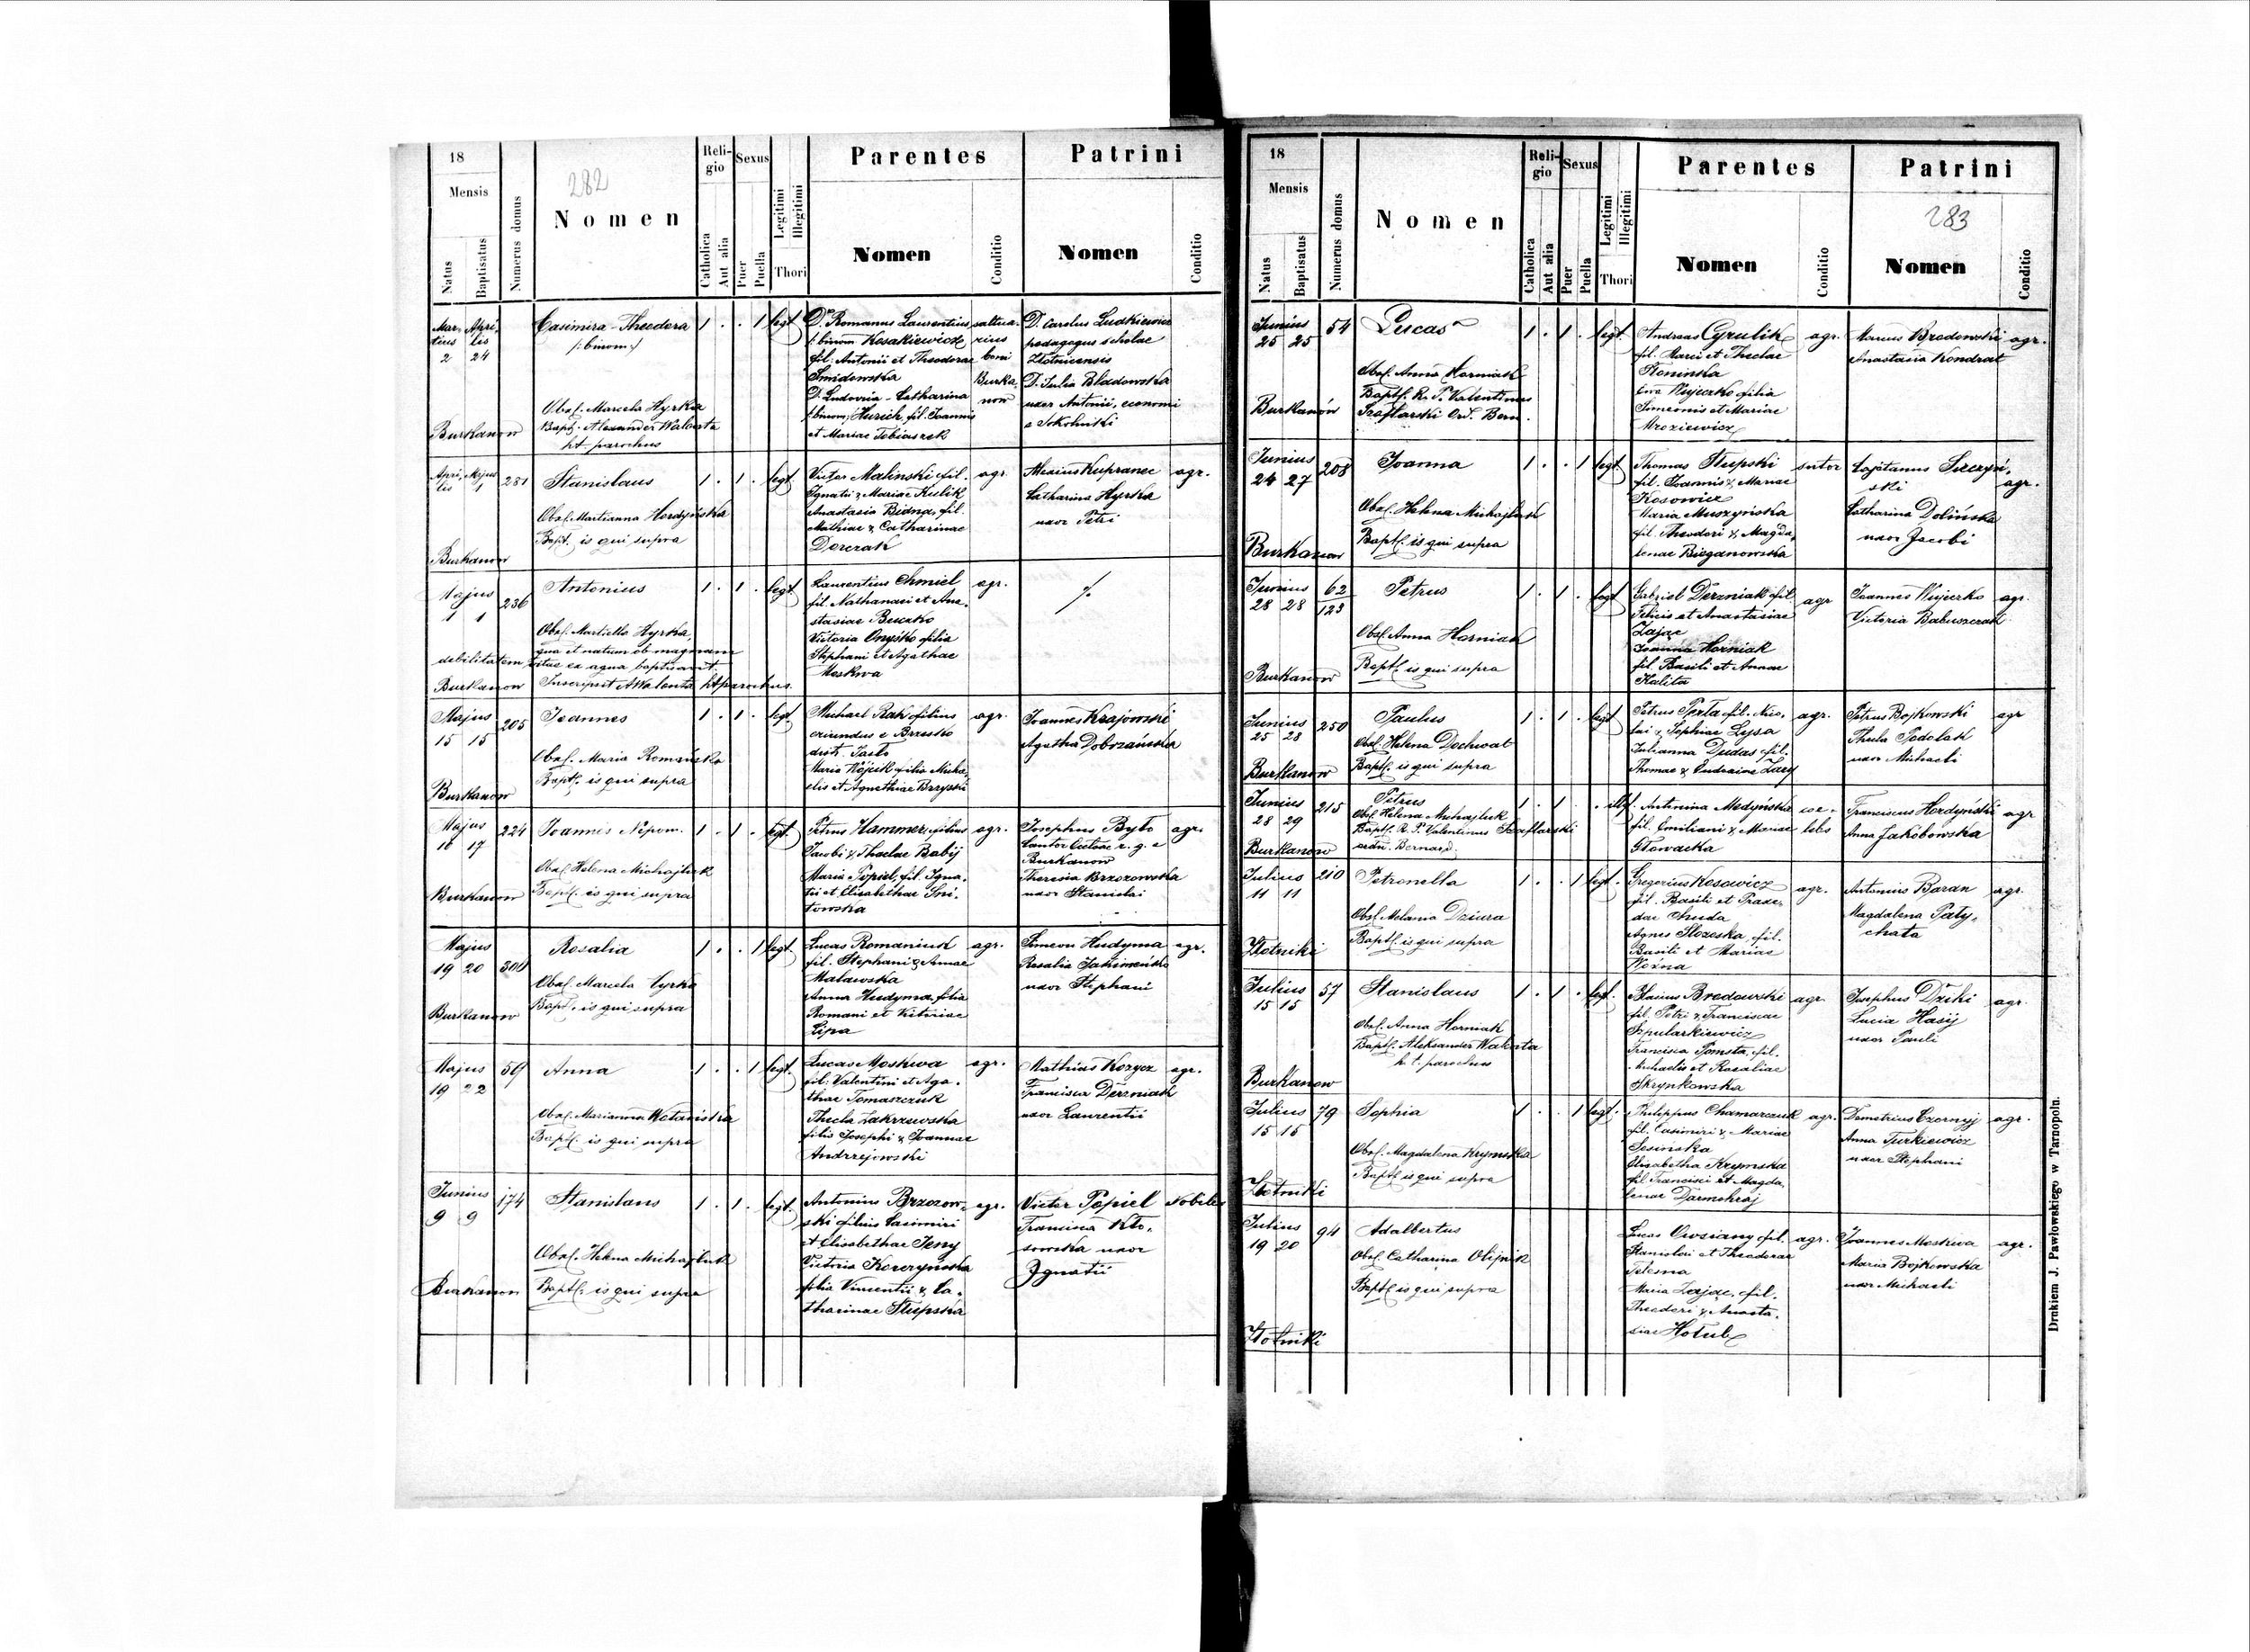 18
Mensis
Natus
Baptisatus
Numerus domus
282
Nomen
Religio
Catholica
Aut alia
Sexus
Puer
Puella
Legitimi
Illegitimi
Thori
Parentes
Nomen
Conditio
Patrini
Nomen
Conditio
Martius Aprilis
2 24
Burkanow
Casimira-Theodora
/:binom:/
Obs. Marcela Hyrka
Bapt. Alexander Walenta
ht. parochus
1 . . 1 legt.
D. Romanus Laurentius
/:binom. Kosakiewicz
fil. Antonii et Theodorae
Smidowska
D. Ludovia-Catharina
/:binom, Hurich, fil. Joannis
et Mariae Tobiaszek
saltuarius
boni
Burkanow
D. Carolus Ludkiewicz
pedagogus scholae
Złotnicensis
D. Julia Bladowska
uxor Antonii, economi
e Sokolniki
Aprilis Majus
1
281
Burkanow
Stanislaus
Obs. Martianna Hordyńska
Bapt. is qui supra
1 . 1 . legt.
Victor Malinski fil.
Ignatii & Mariae Kulik
Anastasia Bidna, fil.
Mathiae & Catharinae
Dorczak
agr.
Alexius Kupranec
Catharina Hyrka
uxor Petri
agr.
Majus
1 1
236
Antonius
Obs. Martella Hyrka,
qua et natum ob magnam
debilitatem vitae ex aqua baptisavit.
Burkanow Inscripsit A Walenta ht parochus.
1 . 1 . legt
Laurentius Chmiel
fil. Nathanaei et Anastasiae
Victoria Onyśko filia
Stephani et Agathae
Moskwa
agr.
Majus
15 15
205
Burkanow
Joannes
Obs. Maria Romańska
Bapt. is qui supra
1 . 1 . legt
Michael Rak filius
oriundus e Brzesko
distr. Jasło
Maria Wójcik filia Michaelis
et Agnethiae Brzyski
agr.
Joannes Krajowski
Agatha Dobrzańska
Majus
16 17
224
Burkanow
Joannes Nepom.
Obs. Helena Michajluk
Bapt. is qui supra
1 . 1 . legt.
Petrus Hammer filius
Jacobi & Theclae Babij
Maria Popiel, fil. Ignatii
et Elisabethae Sniłowska
agr.
Josephus Byto
Cantor Ecclae r. g. e
Burkanow
Theresia Brzozowska
uxor Stanislai
agr.
Majus
19 20
300
Burkanow
Rosalia
Obs. Marcela Hyrka
Bapt. is qui supra
1 . . 1 legt.
Lucas Romaniuk
fil. Stephani & Annae
Malawska
Anna Hudyma, filia
Romani et Victoriae
Lipa
agr.
Simeon Hudyma
Rosalia Jakimeńko
uxor Stephani
agr.
Majus
19 22
59
Anna
Obs. Marianna Wotanistka
Bapt. is qui supra
1 . . 1 legt.
Lucas Moskwa
fil. Valentini et Agathae
Tomaszczuk
Thecla Zakrzewska
filia Josephi & Joannae
Andrzejowski
agr.
Mathias Kozycz
Francisca Derzniak
uxor Laurentii
agr.
Junius
9 9
174
Burkanow
Stanislaus
Obs. Helena Michajluk
Bapt. is qui supra
1 . 1 . legt.
Antonius Brzozowski
filius Casimiri
et Elisabethae Jeny
Victoria Korczyńska
filia Vincentii & Catharinae
Słupska
agr.
Victor Popiel
Francisca Kłosowska
uxor
Ignatii
Nobiles
18
Mensis
Natus
Baptisatus
Numerus domus
Nomen
Religio
Catholica
Aut alia
Sexus
Puer
Puella
Legitimi
Illegitimi
Thori
Parentes
Nomen
Conditio
Patrini
283
Nomen
Conditio
Junius
25 25
54
Burkanów
Lucas
Obs. Anna Horniak
Bapt. R. P. Valentinus
Szaflarski Ord. Bern.
1 . 1 . legt.
Andreas Cyrulik
fil. Marci et Theclae
Koninska
Eva Wujeczko filia
Simeonis et Mariae
Mroziewicz
agr.
Marcus Brodowski
Anastasia Kondrat
agr.
Junius
24 27
208
Burkanow
Joanna
Obs. Helena Michajluk
Bapt. is qui supra
1 . . 1 legt
Thomas Słupski
fil. Joannis & Mariae
Kosowicz
Maria Muszyńska
fil. Theodori & Magdalenae
Bieganowska
sutor
Cajetanus Szczyński
Catharina Dolińska
uxor Jacobi
agr.
Junius
28 28
62
123
Burkanow
Petrus
Obs. Anna Horniak
Bapt. is qui supra
1 . 1 . legt
Gabriel Derzniak fil.
Felicis et Anastasiae
Zając
Joanna Horniak
fil. Basili et Annae
Kalita
agr
Joannes Wujecko
Victoria Babuszczak
agr.
Junius
25 28
250
Burkanow
Paulus
Obs. Helena Dochwat
Bapt. is qui supra
1 . 1 . legt
Petrus Perta fil. Nicolai
& Sophiae Lysa
Julianna Dudas, fil.
Thomae & Eudoxiae Zary
agr.
Petrus Bojkowski
Thecla Podolak
uxor Michaeli
agr
Junius
28 29
215
Burkanow
Petrus
Obs. Helena Michajluk
Bapt. R. P. Valentinus Szaflarski
ordn. Bernard.
1 . 1 . illgt.
Antonina Medyńska
fil. Emiliani & Mariae
Głowacka
coelebs
Franciscus Hordyński
Anna Jakóbowska
agr
Julius
11 11
210
Złotniki
Petronella
Obs. Melania Dziura
Bapt. is qui supra
1 . . 1 legt.
Gregorius Kosowicz
fil. Basili et Praxedae
Chuda
Agnes Slozeska, fil.
Basili et Mariae
Woźna
agr.
Antonius Baran
Magdalena Patychata
agr.
Julius
15 15
57
Burkanow
Stanislaus
Obs. Anna Horniak
Bapt. Aleksander Walenta
h. t. parochus
1 . 1 . legt.
Blasius Brodowski
fil. Petri & Franciscae
Szpularkiewicz
Francisca Pomsta, fil.
Michaelis et Rosaliae
Skrynkowska
agr
Josephus Dziki
Lucia Hasij
uxor Pauli
agr.
Julius
15 15
79
Złotniki
Sophia
Obs. Magdalena Krymska
Bapt. is qui supra
1 . . 1 legt.
Philippus Chamarczuk
fil. Casimiri & Mariae
Sosińska
Elisabetha Krymska
fil. Francisci et Magdalenae
Darmohraj
agr.
Demetrius Czornyj
Anna Turkiewicz
uxor Stephani
agr.
Julius
19 20
94
Złotniki
Adalbertus
Obs. Catharina Olijnik
Bapt. is qui supra
Lucas Owsiany fil.
Stanislai et Theodorae
Telesna
Maria Zając, fil.
Theodori & Anastasiae
Hołub
agr.
Joannes Moskwa
Maria Bojkowska
uxor Michaeli
agr.
Drukiem J. Pawłowskiego w Tarnopolu.